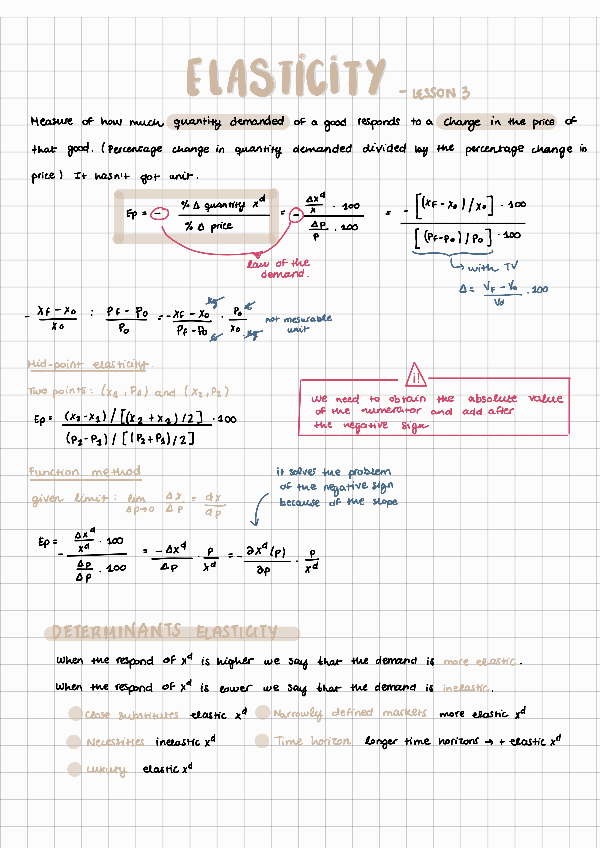 ELASTICITY - LESSON 3
Measure of how much quantity demanded of a good responds to a change in the price of
that good. (Percentage change in quantity demanded divided by the percentage change in
price) It hasn't got unit.
Ep = - % Δ quantity x^d / % Δ price = - (Δx^d / x · 100) / (Δp / p · 100) = - [(x_F - x_0) / x_0] · 100 / [(P_F - P_0) / P_0] · 100
law of the
demand.
with TV
Δ = (V_F - V_0) / V_0 · 100
- (x_F - x_0) / x_0 : (P_F - P_0) / P_0 = - (x_F - x_0) / (P_F - P_0) · P_0 / x_0
kg € € kg
not mesurable
unit
Mid-point elasticity.
Two points: (x_1, P_1) and (x_2, P_2)
Ep = (x_2 - x_1) / [(x_2 + x_1) / 2] · 100 / (P_2 - P_1) / [(P_2 + P_1) / 2]
!!
we need to obtain the absolute value
of the numerator and add after
the negative sign
Function method
given limit: lim Δp→0 Δx / Δp = dx / dp
it solves the problem
of the negative sign
because of the slope
Ep = - (Δx^d / x^d · 100) / (Δp / Δp · 100) = - Δx^d / Δp · p / x^d = - ∂x^d (p) / ∂p · p / x^d
DETERMINANTS ELASTICITY
When the respond of x^d is higher we say that the demand is more elastic.
When the respond of x^d is lower we say that the demand is inelastic.
Close substitutes elastic x^d Narrowly defined markets more elastic x^d
Necessities inelastic x^d Time horizon longer time horizons → + elastic x^d
Luxury elastic x^d